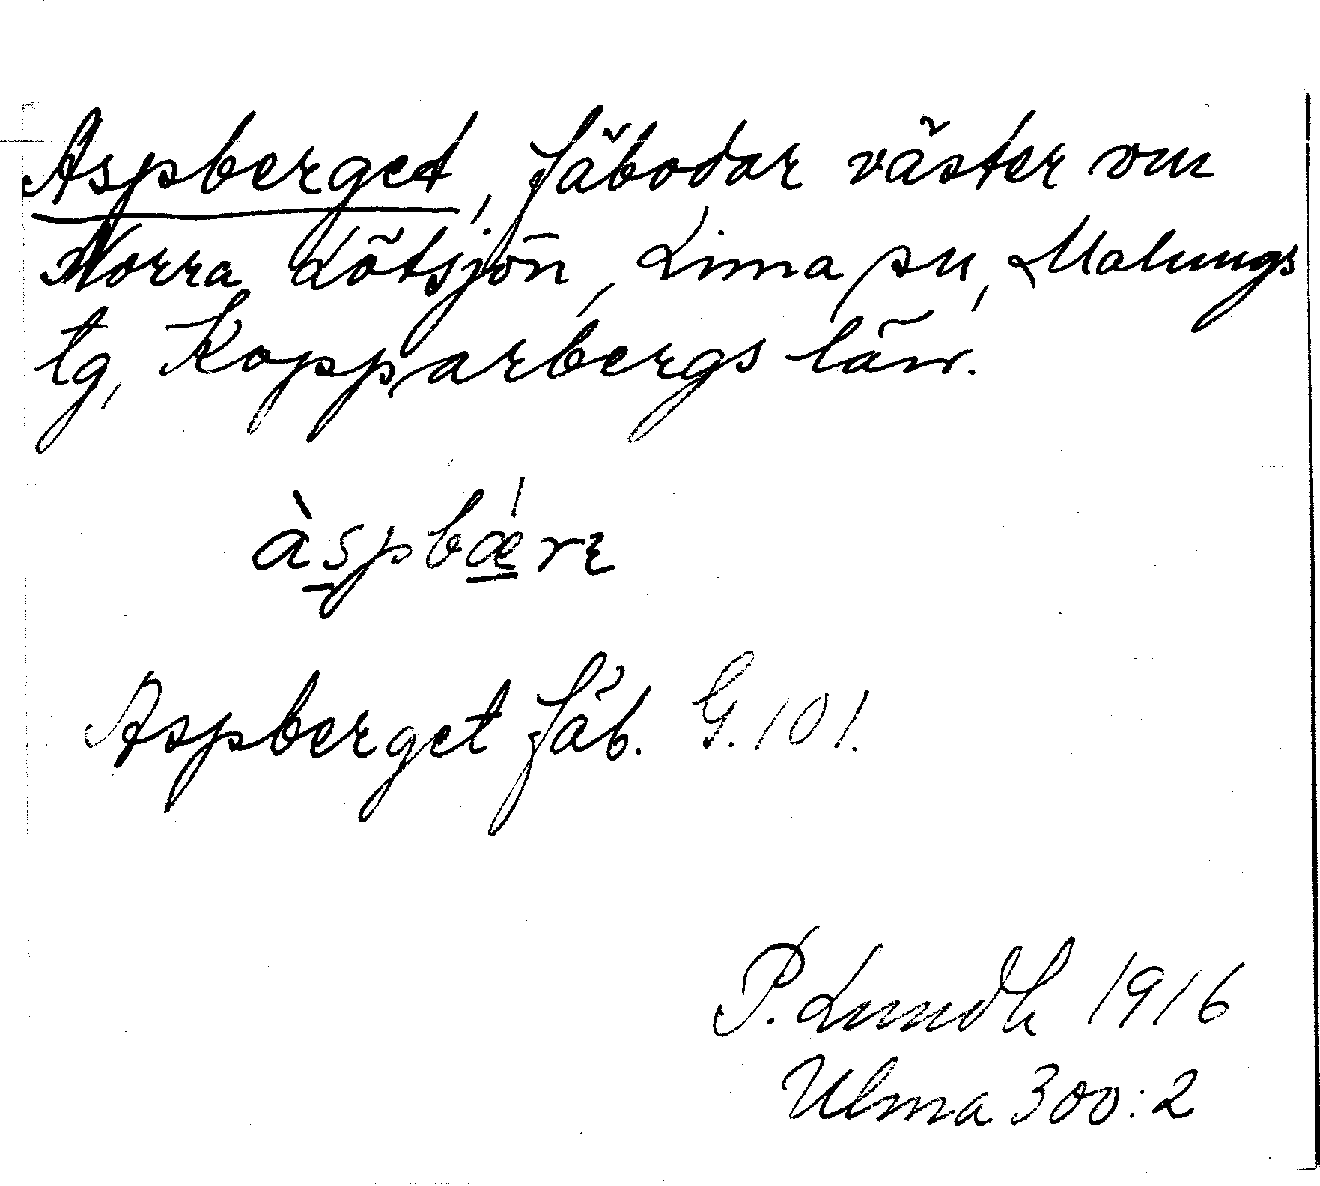 Aspberget, fäbodar väster om
Norra Lötsjön, Lima sn, Malungs
tg, Kopparbergs län.
àspbǽrɛ
Aspberget fäb. G. 101.
P. Lundh 1916
Ulma 300:2